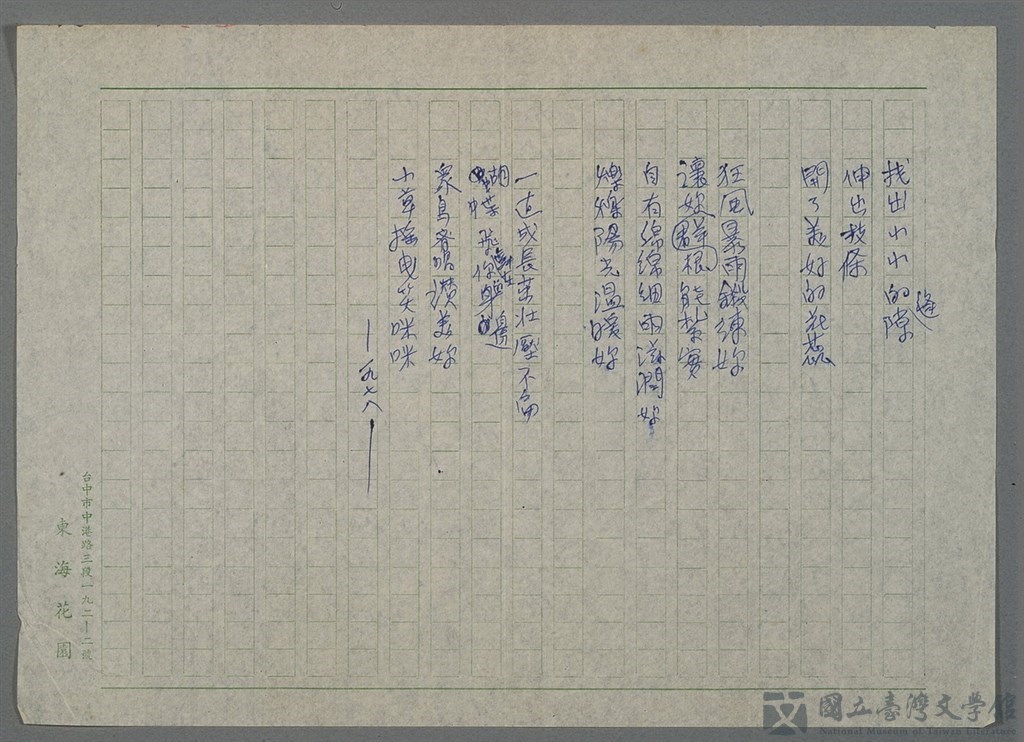 找出小小的隙縫
伸出枝條
開了美好的花蕊
狂風暴雨鍛練妳
讓妳群根能紮實
自有綿綿細雨滋潤妳
爍爍陽光溫暖妳
一直成長茁壯壓不扁
蝴蝶 你 在 邊
眾鳥齊唱讚美妳
小草搖曳笑咪咪
一九七八
台中市中港路三段一九二－二號
東海花園
國立臺灣文學館
National Museum of Taiwan Literature